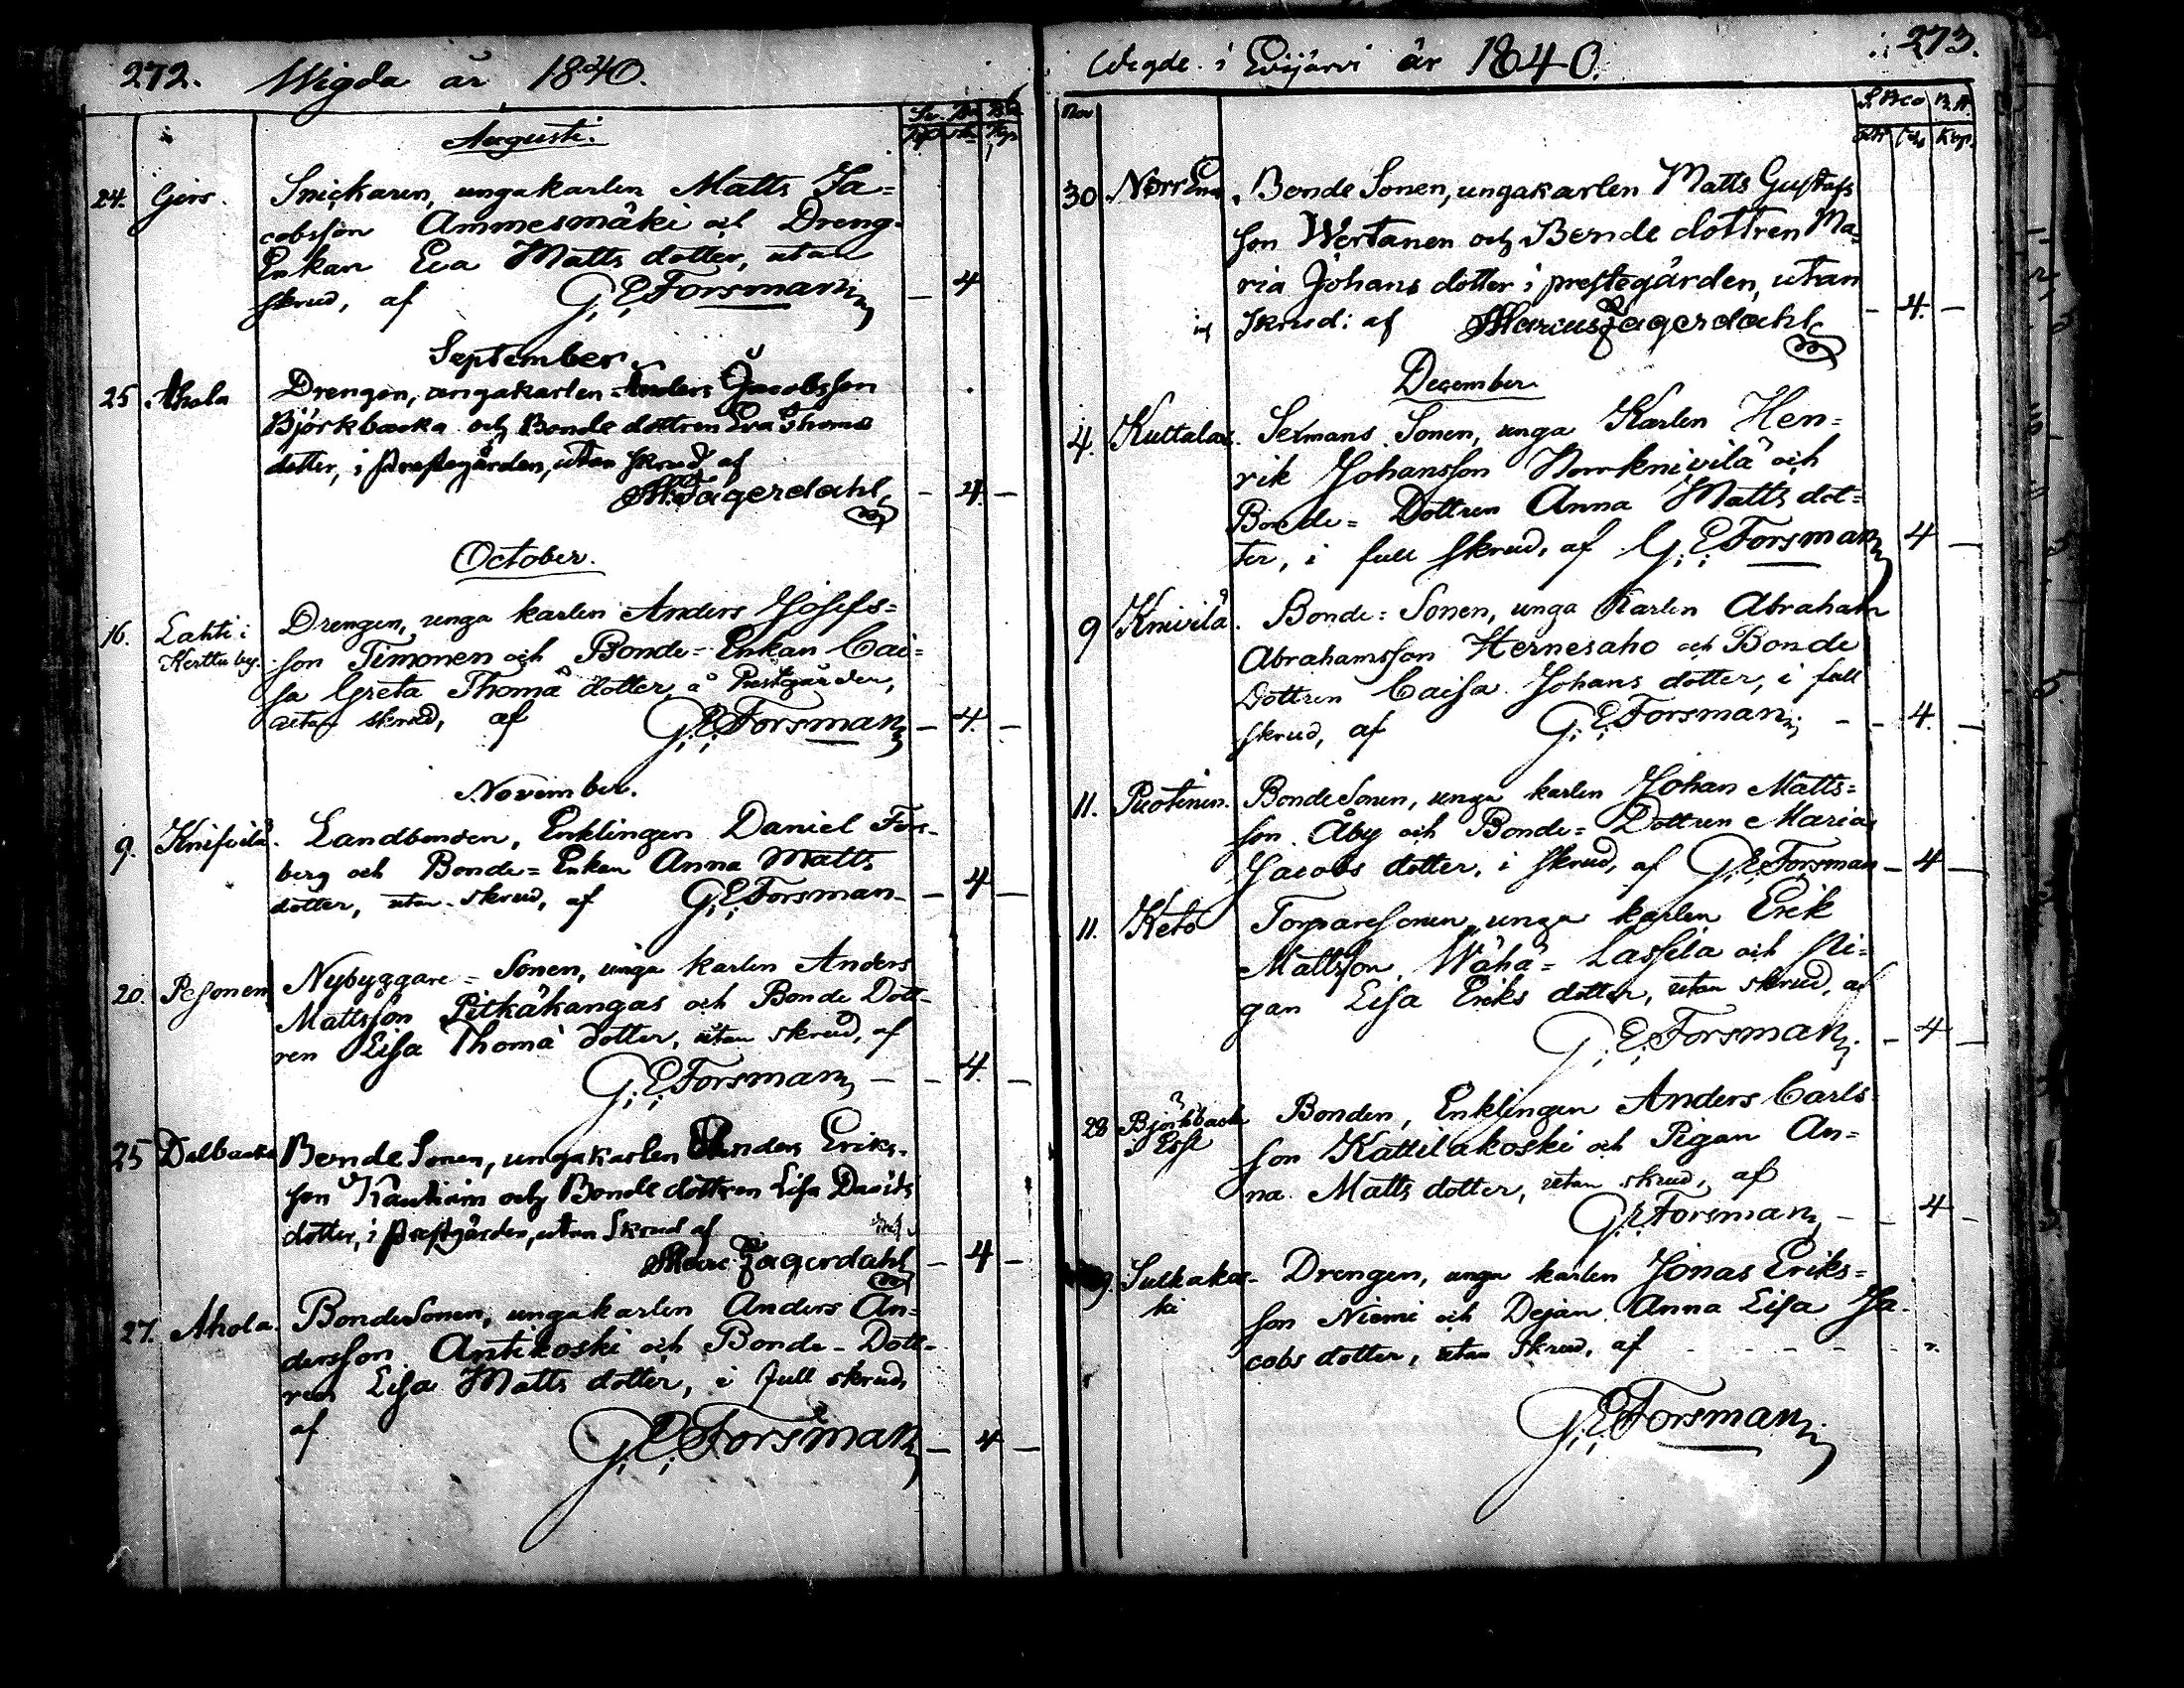 272. Wigda år 1840.
Augusti.
24. Gers. Snickaren, ungakarlen Matts Ja=
cobsson Ammesmäki och Dreng-
Enkan Eva Matts dotter, utan
skrud, af G. E. Forsman — 4
September
25 Ahola Drengen, ungakarlen Anders Jacobsson
Björkbacka och Bonde dottren Eva Thomæ
dotter, i Prestegården, utan skrud af
Jagerdahl — 4 —
October.
16. Lahti i Drengen, unga karlen Anders Josefs=
Kerttu by. son Timonen och Bonde=Enkan Cai=
sa Greta Thomä dotter, å Prestgården,
utan skrud, af G. E. Forsman — 4. —
November.
9. Knifvilä. Landbonden, Enklingen Daniel Fors-
berg och Bonde=Enkan Anna Matts
dotter, utan skrud, af G. E. Forsman — 4 —
20. Pesonen Nybyggare=Sonen, unga karlen Anders
Mattsson Pitkäkangas och Bonde Dott-
ren Lisa Thomä dotter, utan skrud, af
G. E. Forsman — — 4. —
25 Dalbacka Bonde Sonen, ungakarlen Anders Eriks-
son och Bonde dottren Lisa Davids
dotter, i Prestgården, utan skrud af
Marc. Jagerdahl — 4 —
27. Ahola. BondeSonen, ungakarlen Anders An=
dersson Antikoski och Bonde-Dott-
ren Lisa Matts dotter, i full skrud,
af G. E. Forsman — 4 —
Vigde i Evijärvi år 1840. 273.
Nov
30 Bonde Sonen, ungakarlen Matts Gustafs
son Wertanen och Bonde dottren Ma=
ria Johans dotter i prestegården, utan
skrud: af Marcus Jagerdahl — 4. —
December
4. Sexmans Sonen, unga Karlen Hen=
rik Johansson Norrknivilä och
Bonde=Dottren Anna Matts dot=
ter, i full skrud, af G. E. Forsman 4 —
9 Knivilä. Bonde=Sonen, unga Karlen Abraham
Abrahamsson Hernesaho och Bonde
Dottren Caisa Johans dotter, i full
skrud, af G. E. Forsman — — 4. —
11. Puotinen. BondeSonen, unga karlen Johan Matts=
son Åby och Bonde=Dottren Maria
Jacobs dotter, i skrud, af G. E. Forsman — 4 —
11. Keto Torparesonen, unga karlen Erik
Mattsson Wähä=Lassila och Pi=
gan Lisa Eriks dotter, utan skrud, af
G. E. Forsman. — 4 —
28 Björkbacka Bonden, Enklingen Anders Carls-
Esse son Kattilakoski och Pigan An=
na Matts dotter, utan skrud, af
G. E. Forsman — — 4 —
Drengen, unga karlen Jonas Eriks=
son Niemi och Dejan Anna Lisa Ja-
cobs dotter, utan skrud, af - - - - -
G. E. Forsman